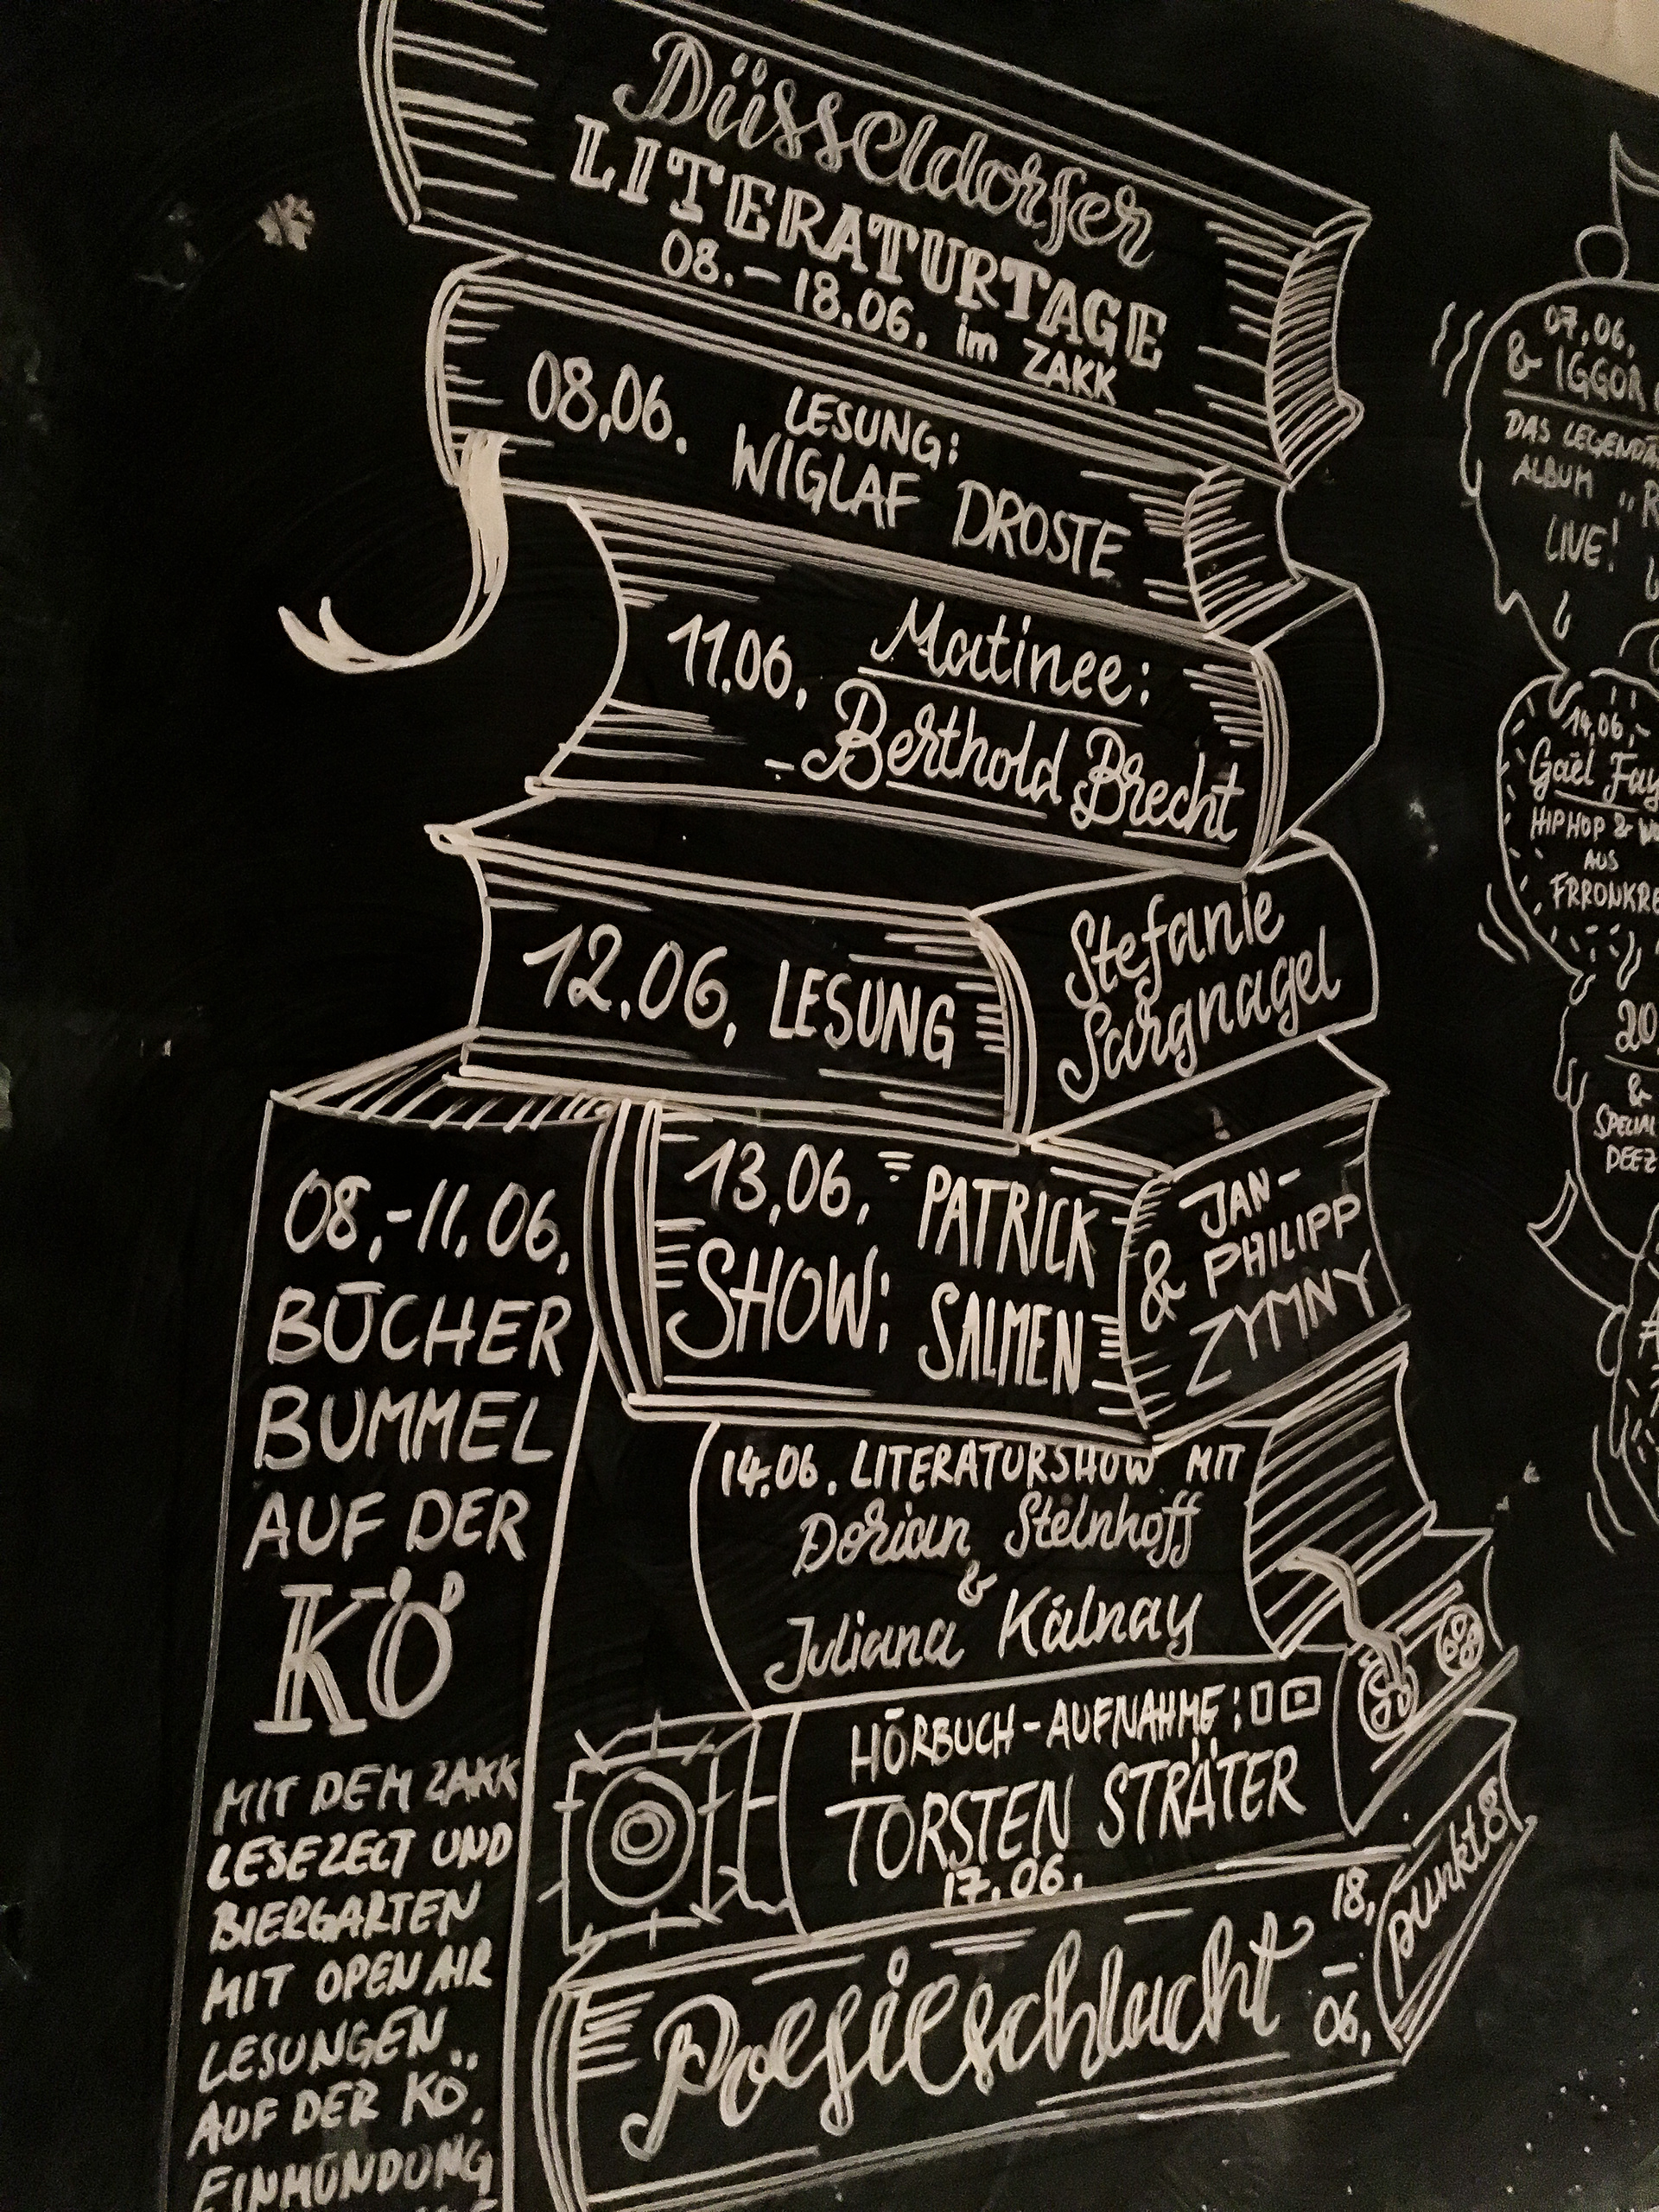 Düsseldorfer
LITERATURTAGE
08.-18.06. im ZAKK
08.06. LESUNG:
WIGLAF DROSTE
11.06. Matinee:
Berthold Brecht
12.06. LESUNG
Stefanie
Sargnagel
13.06. PATRICK
SHOW: SALMEN
JAN-
& PHILIPP
ZYMNY
14.06. LITERATURSHOW MIT
Dorian Steinhoff
&
Juliana Kálnay
HÖRBUCH-AUFNAHME:
TORSTEN STRÄTER
17.06.
Poesieschlacht
18.
06.
punkt8
08.-11.06.
BÜCHER
BUMMEL
AUF DER
KÖ
MIT DEM ZAKK
LESEZELT UND
BIERGARTEN
MIT OPEN AIR
LESUNGEN
AUF DER KÖ,
EINMÜNDUNG
07.06.
& IGGOR
DAS
ALBUM
LIVE!
14.06.
Gaël
HIPHOP &
AUS
20.
&
SPECIAL